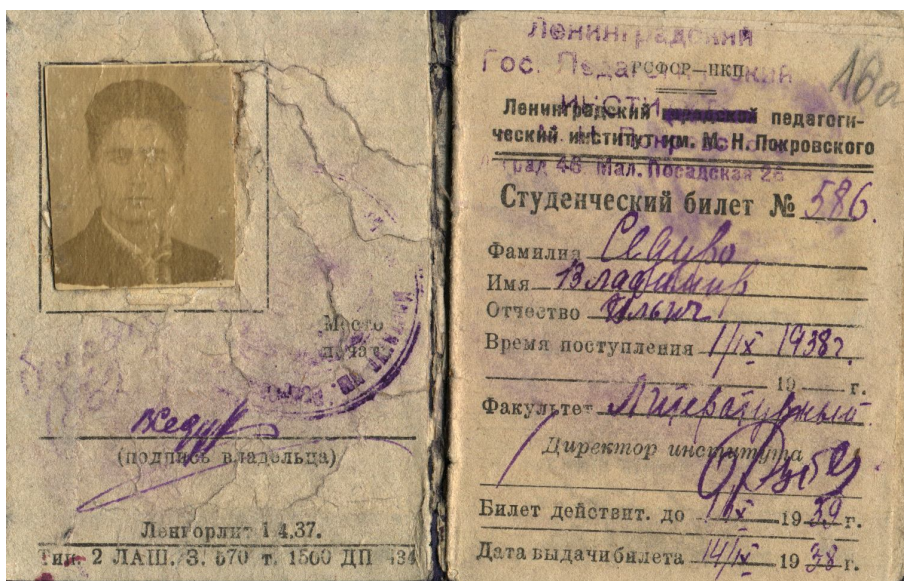 Место
печати
(подпись владельца)
Ленгорлит 1.4.37.
Тип. 2 ЛАШ. З. 570 т. 1500 ДП 434
Ленинградский
Гос. Педагогический
РСФСР—НКП
16а
Ленинградский городской педагоги-
ческий институт им. М. Н. Покровского
град 46. Мал. Посадская 26
Студенческий билет № 586.
Фамилия
Имя Владимир
Отчество Ильич
Время поступления 1/IX 1938 г.
19 г.
Факультет Литературный
Директор института
Билет действит. до 1/IX 1939 г.
Дата выдачи билета 14/IX 1938 г.